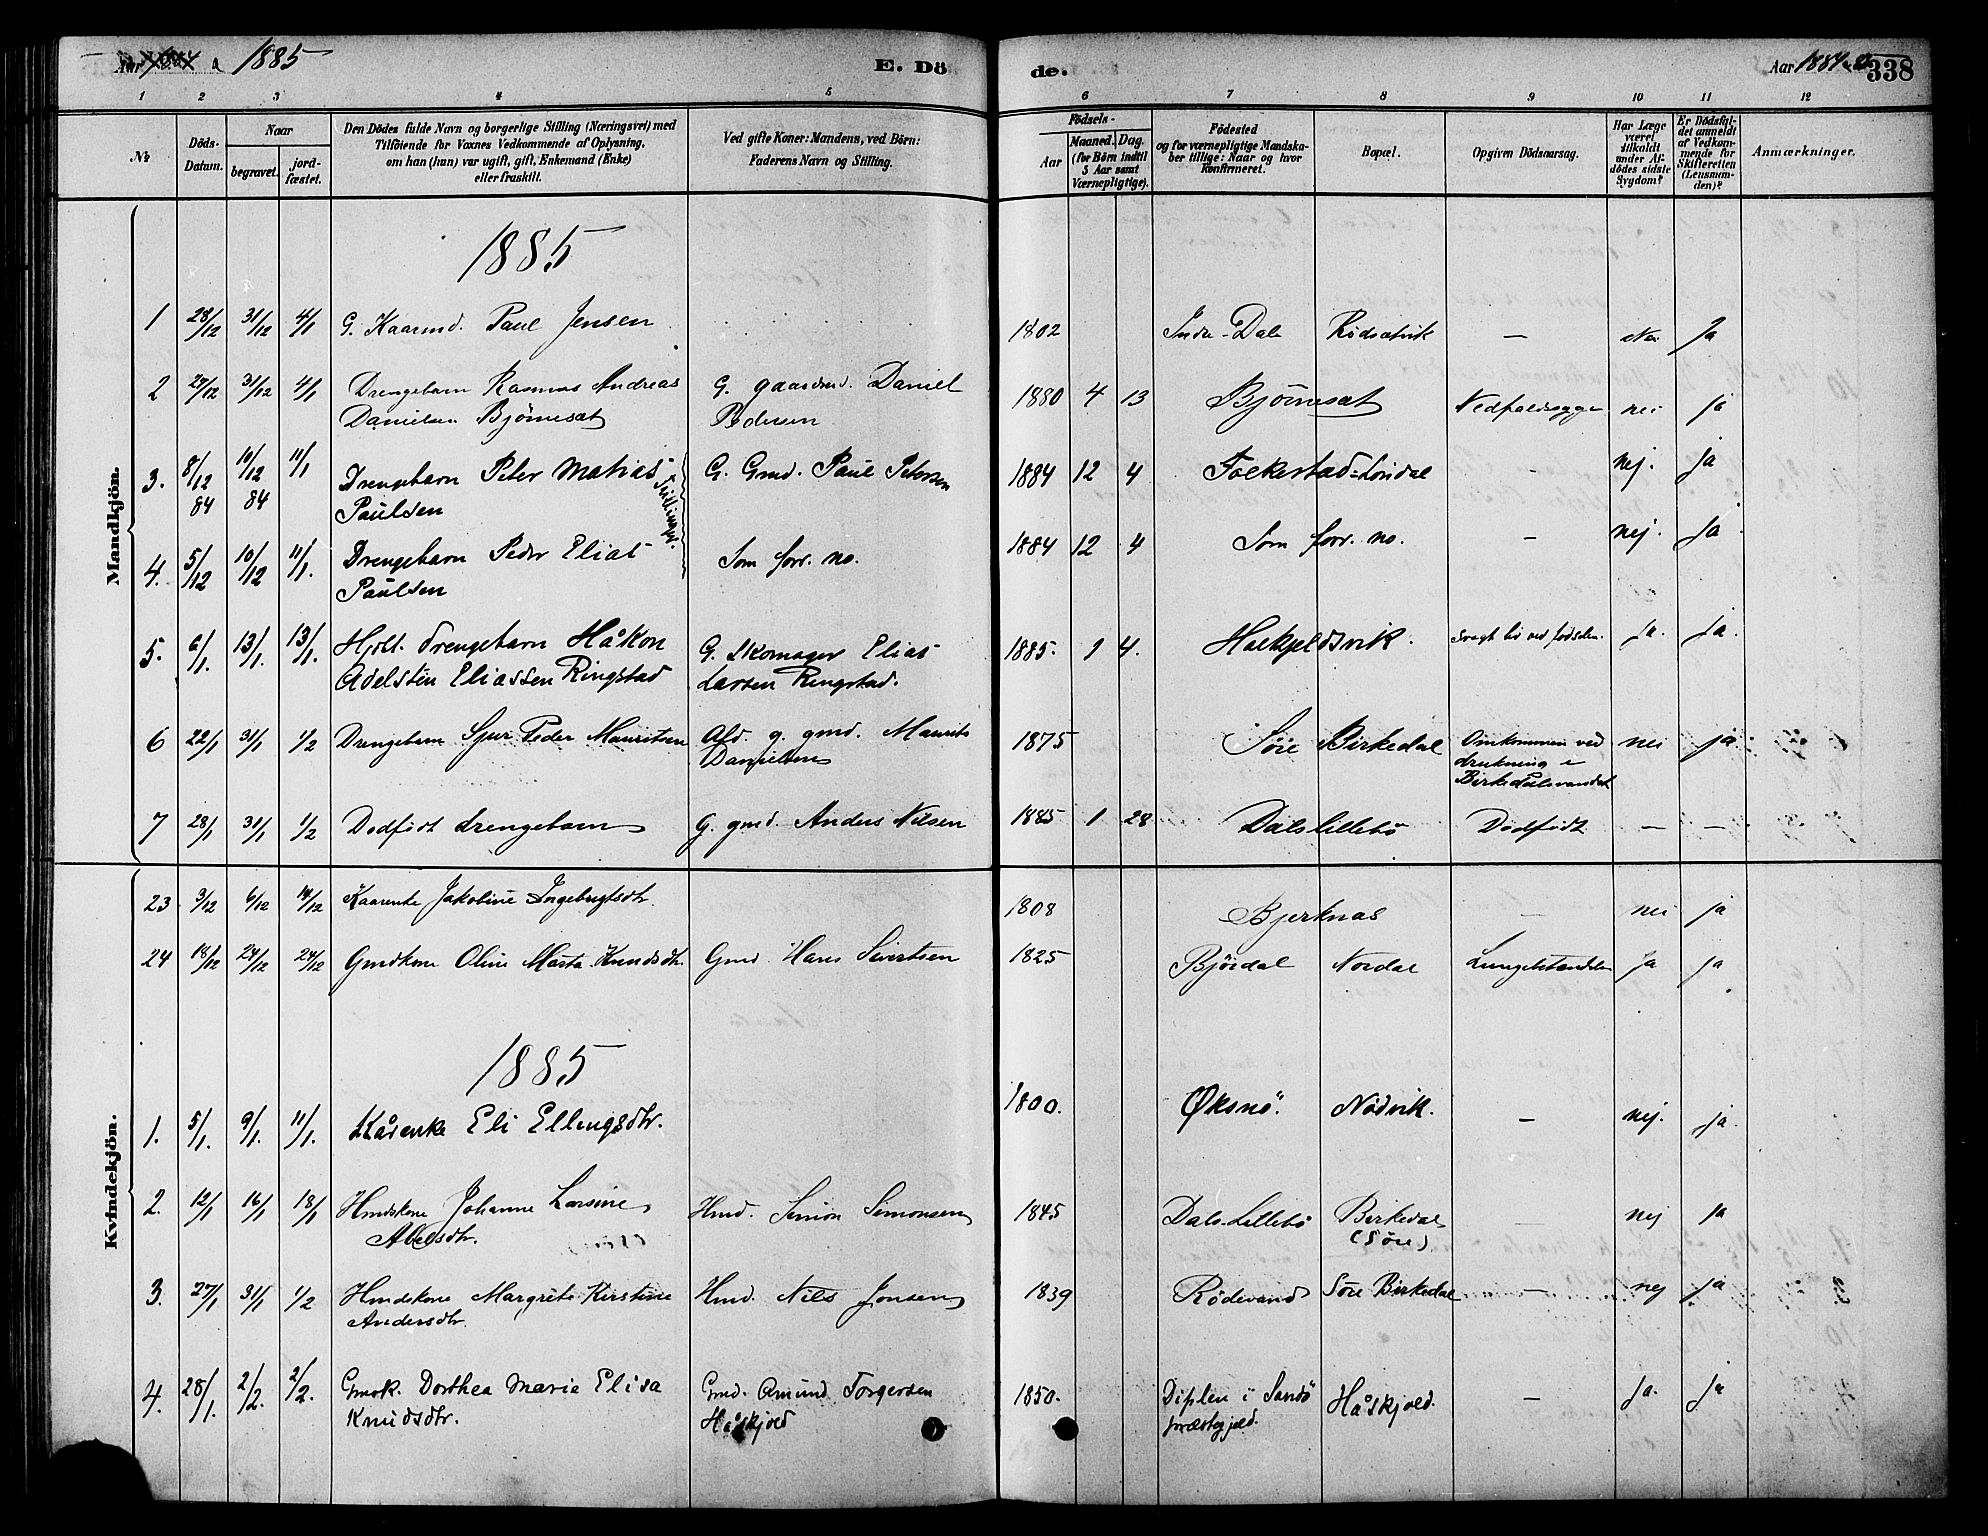 Aar 1884 & 1885
E. Dö
de.
Aar 1884 & 85
338
1 2 3 4 5 6 7 8 9 10 11 12
No
Döds-Datum.
Naar
begravet.
jord-fæstet.
Den Dödes fulde Navn og borgerlige Stilling (Næringsvei) med
Tilföiende for Voxnes Vedkommende af Oplysning,
om han (hun) var ugift, gift, Enkemand (Enke)
eller fraskilt.
Ved gifte Koner: Mandens, ved Börn:
Faderens Navn og Stilling.
Födsels-
Aar
Maaned. Dag.
(for Börn indtil
5 Aar samt
Værnepligtige).
Födested
og for værnepligtige Mandska-
ber tillige: Naar og hvor
Konfirmeret.
Bopæl.
Opgiven Dödsaarsag.
Har Læge
været
tilkaldt
under Af-
dödes sidste
Sygdom?
Er Dödsfal-
det anmeldt
af Vedkom-
mende for
Skifteretten
(Lensman-
den)?
Anmærkninger.
Mandkjön.
1885
1 28/12 31/12 4/1 G. Kaarmd. Paul Jensen 1802 Indre-Dale Rødsætvik — Nei Ja
2 27/12 31/12 4/1 Drengebarn Rasmus Andreas G. gaardmd. Daniel 1880 4 13 Bjørnesæt Nedfaldssyge nei ja
Danielsen Bjørnesæt Pedersen
3. 8/12 84 10/12 84 11/1 Drengebarn Peter Matias G. Gmd. Paul Petersen 1884 12 4 Folkestad-Løvdal - nej. ja
Paulsen
Tvillinger.
4. 5/12 10/12 11/1. Drengebarn Peder Elias Som forr. no. 1884 12 4 Som forr. no. - nej. ja
Paulsen
5. 6/1. 13/1. 13/1. Hjdt. drengebarn Håkon G. Skomager Elias 1885. 1 4. Halkjeldsvik. svagt liv ved fødselen. ja. ja.
Adelstén Eliassen Ringstad Larsen Ringstad.
6 22/1 31/1 1/2 Drengebarn Sjur Peder Mauritsen Afd. g. gmd. Maurits 1875 Søre Birkedal Omkommen ved nei ja
Danielsen drukning i
Birkedalsvandet
7 28/1 31/1 1/2 Dødfødt drengebarn G. gmd. Anders Nilsen 1885 1 28 Dalslillebø Dødfødt — —
Kvindekjön.
23 3/12 6/12 14/12 Kaarenke Jakobine Ingebrigtsdtr. 1808 Bjerknas — nei ja
24 18/12 24/12 24/12 Gmdkone Oline Marta Knudsdtr. Gmd. Hans Sivertsen 1825 Bjørdal Nordal Lungebetændelse Ja ja
1885
1. 5/1. 9/1. 11/1. Kårenke Eli Ellingsdtr. 1800. Øksnø. Nødvik. — nej. ja.
2. 12/1 16/1 18/1 Hmdskone Johanne Larsine Hmd. Simon Simonsen 1845 Dals-Lillebø Birkedal — nej ja
Abelsdtr. (Søre)
3. 27/1 31/1 1/2 Hmdskone Margrete Kirstine Hmd. Nils Jonsen 1839 Rødevand Søre Birkedal — nej ja
Andersdtr.
4. 28/1. 2/2. 2/2. Gmdk. Dorthea Marie Elisa Gmd. Amund Torgersen 1850. Diplen i Sandø Håskjold. — Ja. ja
Knudsdtr. Håskjold præstegjeld.